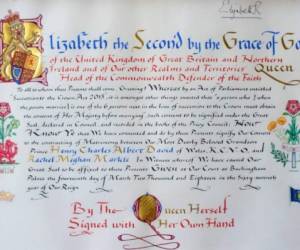 Elizabeth R
Elizabeth the Second by the Grace of Go
of the United Kingdom of Great Britain and Northern
Ireland and of Our other Realms and Territories Queen
Head of the Commonwealth Defender of the Faith
To all to whom these Presents shall come, Greeting! Whereas by an Act of Parliament entitled
Succession to the Crown Act 2013, it is amongst other things enacted that "a person who (when
the person marries) is one of the 6 persons next in the line of succession to the Crown must obtain
the consent of Her Majesty before marrying such consent to be signified under the Great
Seal, declared in Council, and recorded in the books of the Privy Council. Now
Know Ye that We have consented and do by these Presents signify Our Consent
to the contracting of Matrimony between Our Most Dearly Beloved Grandson
Prince Henry Charles Albert David of Wales, K.C.V.O. and
Rachel Meghan Markle. In Witness whereof We have caused Our
Great Seal to be affixed to these Presents Given at Our Court at Buckingham
Palace the fourteenth day of March Two Thousand and Eighteen in the Sixty-seventh
year of Our Reign.
By The Queen Herself
Signed with Her Own Hand